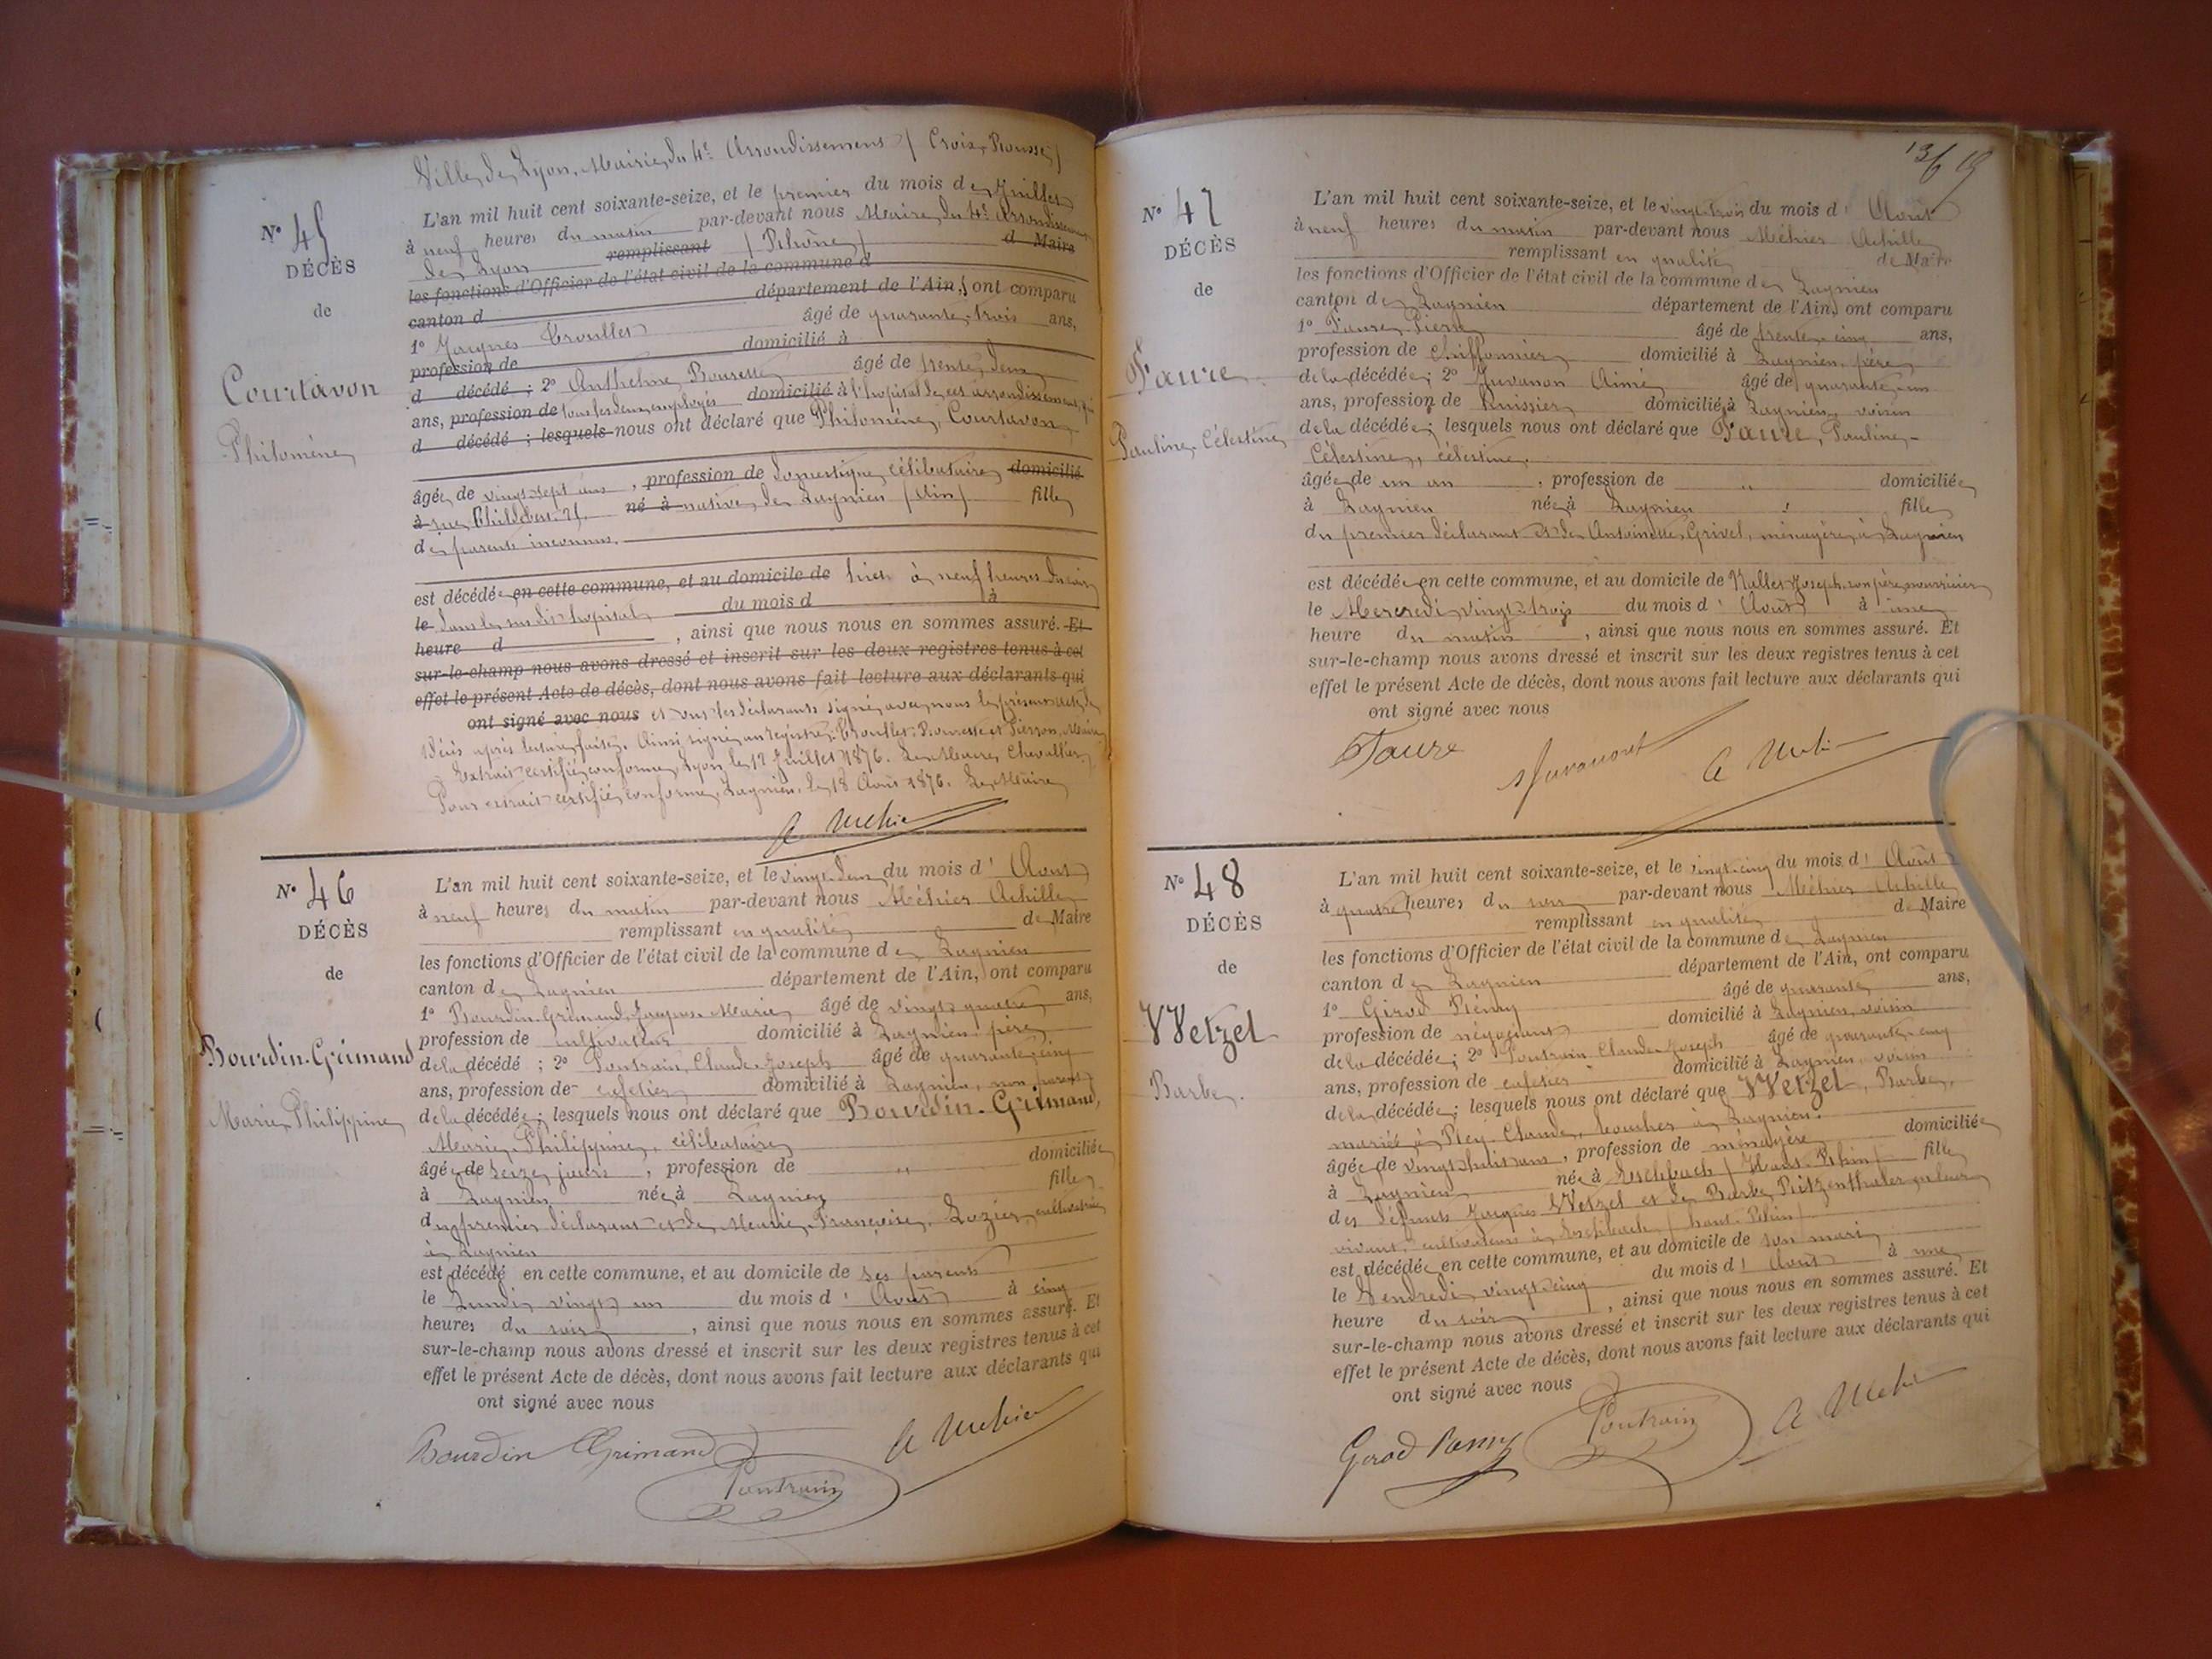 Ville de Lyon, Mairie du 4e Arrondissement (Croix-Rousse)
N° 45
DÉCÈS
de
Courtavon
Philomène
L'an mil huit cent soixante-seize, et le premier du mois de Juillet
à neuf heures du matin par-devant nous Maire du 4e Arrondissement
de Lyon remplissant (Rhône) d Maire
les fonctions d'Officier de l'état civil de la commune d
canton d département de l'Ain, ont comparu
1° Jacques Trouillet âgé de quarante-trois ans,
profession de domicilié à
d décédé ; 2° Anthelme Bouresse âgé de trente deux
ans, profession de tous les deux employés domicilié à l'hopital de cet arrondissement, qui
d décédé ; lesquels nous ont déclaré que Philomène, Courtavon
âgée de vingt-sept ans, profession de domestique, célibataire, domicilié
à rue Childebert 21. né à native de Lagnieu (Ain) fille
de parents inconnus.
est décédée en cette commune, et au domicile de hier à neuf heures du soir
le dans le susdit hopital du mois d à
heure d , ainsi que nous nous en sommes assuré. Et
sur-le-champ nous avons dressé et inscrit sur les deux registres tenus à cet
effet le présent Acte de décès, dont nous avons fait lecture aux déclarants qui
ont signé avec nous et ont les déclarants signé avec nous le présent acte de
décès après lecture faite. Ainsi signé au registre: Trouillet, Bouresse et Pierron, Maire
Extrait certifié conforme, Lyon le 17 Juillet 1876. Le Maire, Chevallier.
Pour extrait certifié conforme, Lagnieu, le 18 Août 1876. Le Maire
A Mehier
N° 46
DÉCÈS
de
Bourdin-Grimaud
Marie Philippine
L'an mil huit cent soixante-seize, et le vingt-deux du mois d'Août
à neuf heures du matin par-devant nous Méhier Achille
remplissant en qualité de Maire
les fonctions d'Officier de l'état civil de la commune de Lagnieu
canton de Lagnieu département de l'Ain, ont comparu
1° Bourdin-Grimaud, Jacques-Marie âgé de vingt-quatre ans,
profession de cultivateur domicilié à Lagnieu, père
de la décédé ; 2° Poutrain, Claude-Joseph âgé de quarante-cinq
ans, profession de cafetier domicilié à Lagnieu, non parent
de la décédée ; lesquels nous ont déclaré que Bourdin-Grimaud,
Marie-Philippine, célibataire
âgée de seize jours, profession de " domiciliée
à Lagnieu née à Lagnieu fille
du premier déclarant et de Marie Françoise, Lozier, cultivatrice
à Lagnieu
est décédé en cette commune, et au domicile de ses parents
le Lundi vingt-un du mois d'Août à cinq
heures du soir, ainsi que nous nous en sommes assuré. Et
sur-le-champ nous avons dressé et inscrit sur les deux registres tenus à cet
effet le présent Acte de décès, dont nous avons fait lecture aux déclarants qui
ont signé avec nous
Bourdin Grimaud
A Mehier
Poutrain
N° 47
DÉCÈS
de
Faure
Pauline, Célestine
L'an mil huit cent soixante-seize, et le vingt-trois du mois d'Août
à neuf heures du matin par-devant nous Méhier Achille
remplissant en qualité de Maire
les fonctions d'Officier de l'état civil de la commune de Lagnieu
canton de Lagnieu département de l'Ain, ont comparu
1° Faure, Pierre âgé de trente-cinq ans,
profession de chiffonnier domicilié à Lagnieu, père
de la décédée ; 2° Juvanon Aimé âgé de quarante-un
ans, profession de huissier domicilié à Lagnieu, voisin
de la décédée ; lesquels nous ont déclaré que Faure, Pauline-
Célestine, célestine.
âgée de un an, profession de " domiciliée
à Lagnieu née à Lagnieu fille
du premier déclarant et de Antoinette, Grivel, ménagère, à Lagnieu
est décédée en cette commune, et au domicile de Vallet Joseph son père nourricier
le Mercredi vingt-trois du mois d'Août à une
heure du matin, ainsi que nous nous en sommes assuré. Et
sur-le-champ nous avons dressé et inscrit sur les deux registres tenus à cet
effet le présent Acte de décès, dont nous avons fait lecture aux déclarants qui
ont signé avec nous
Faure
A Mehier
N° 48
DÉCÈS
de
Wetzel
Barbe.
L'an mil huit cent soixante-seize, et le vingt-cinq du mois d'Août
à quatre heures du soir par-devant nous Méhier Achille
remplissant en qualité de Maire
les fonctions d'Officier de l'état civil de la commune de Lagnieu
canton de Lagnieu département de l'Ain, ont comparu
1° Girod Rémy âgé de quarante ans,
profession de négociant domicilié à Lagnieu, voisin
de la décédée ; 2° Poutrain Claude-Joseph âgé de quarante-cinq
ans, profession de cafetier domicilié à Lagnieu, voisin
de la décédée ; lesquels nous ont déclaré que Wetzel, Barbe,
mariée à Pley Claude, boucher à Lagnieu.
âgée de vingt-huit ans, profession de ménagère domiciliée
à Lagnieu née à Eschbach (Haut-Rhin) fille
des défunts Jacques Wetzel et de Barbe Ritzenthaler en leur
vivant, cultivateurs à Eschbach (haut-Rhin)
est décédée en cette commune, et au domicile de son mari
le Vendredi vingt-cinq du mois d'Août à une
heure du soir, ainsi que nous nous en sommes assuré. Et
sur-le-champ nous avons dressé et inscrit sur les deux registres tenus à cet
effet le présent Acte de décès, dont nous avons fait lecture aux déclarants qui
ont signé avec nous
Girod Remy
Poutrain
A Mehier